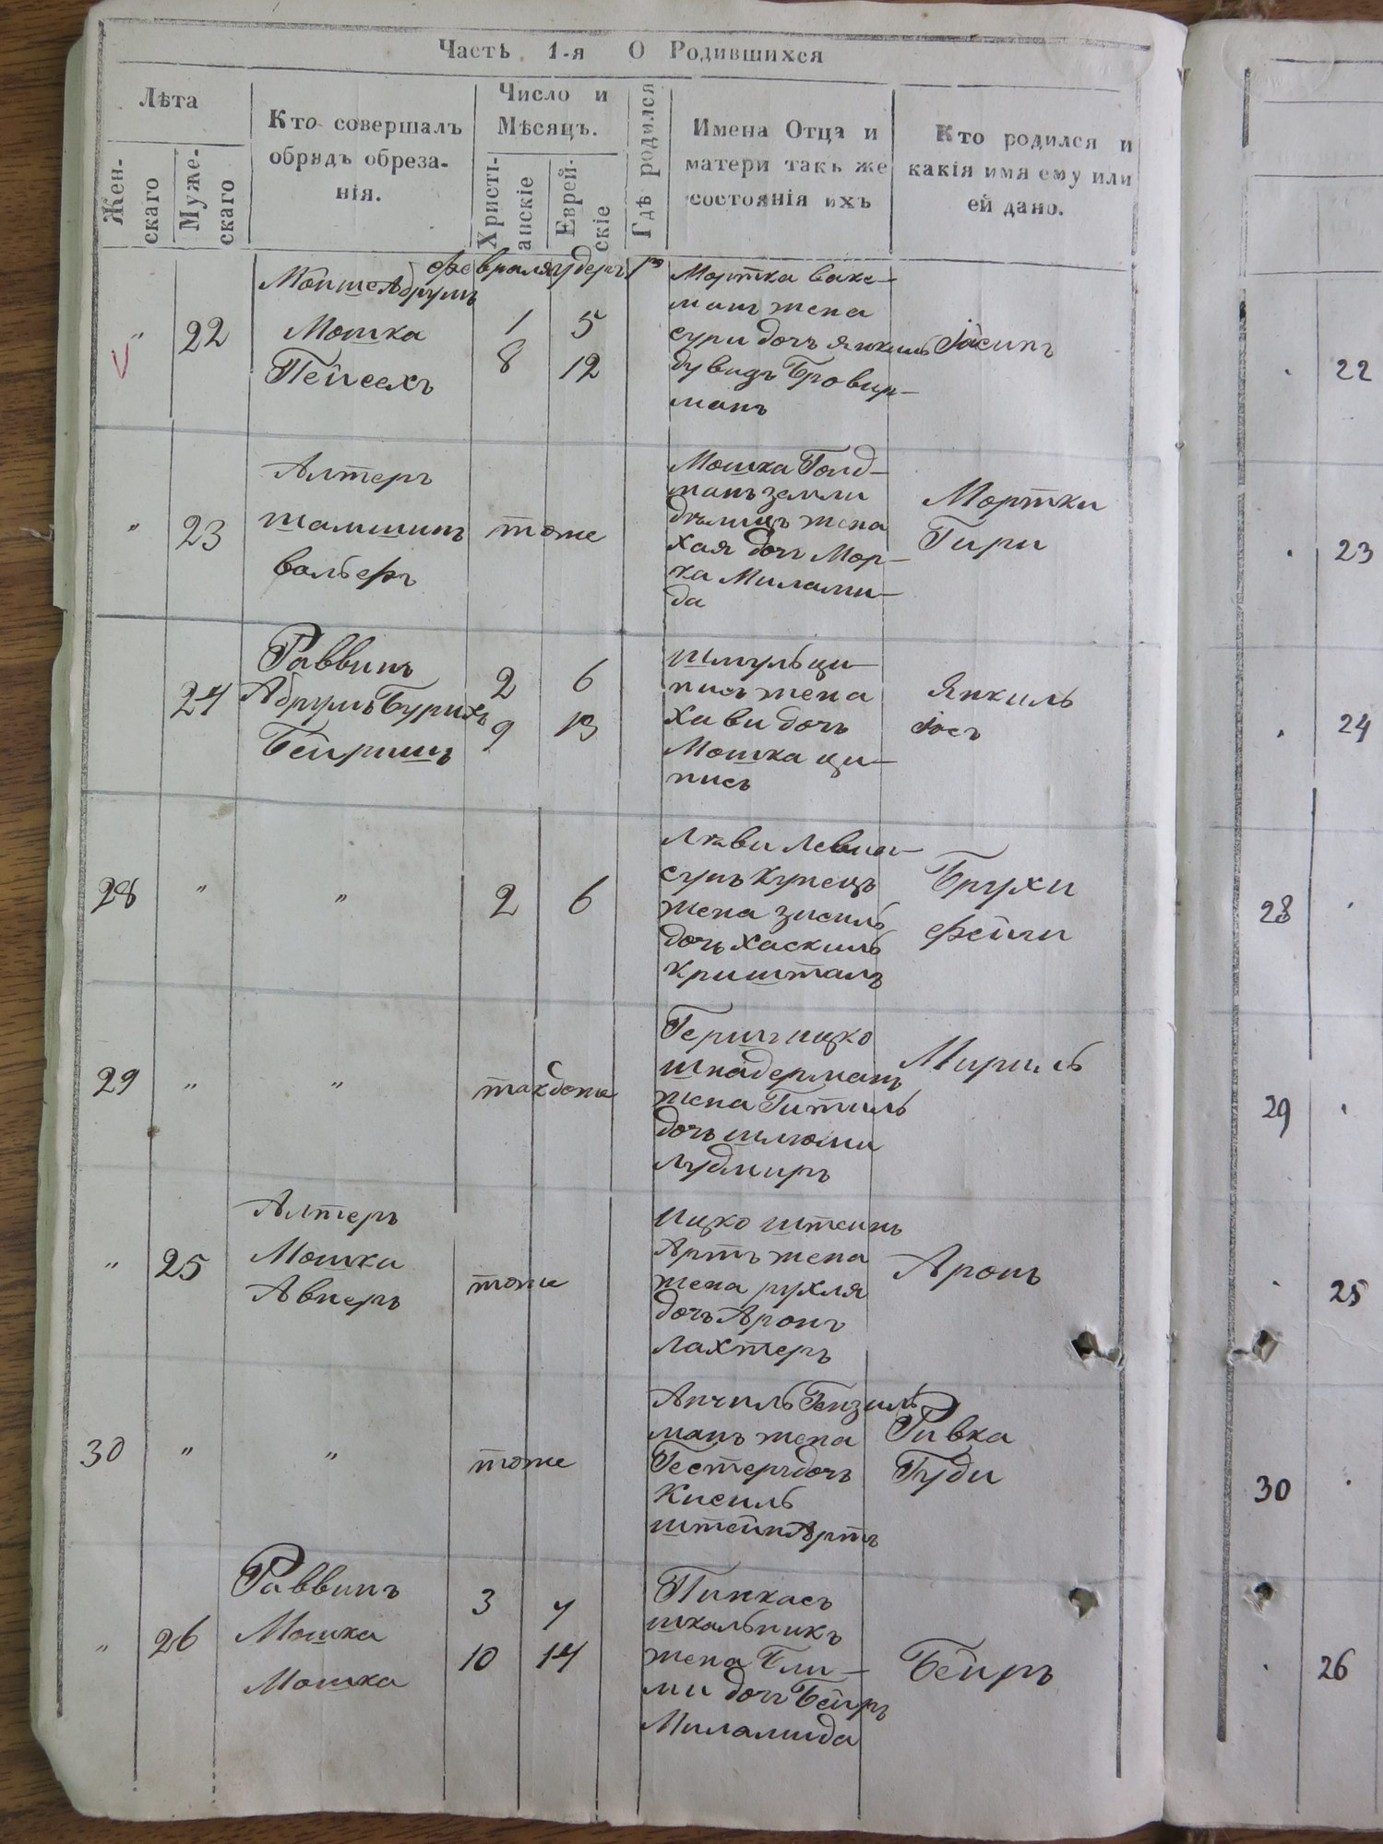 Часть 1-я О Родившихся
Лѣта
Жен-
скаго
Муже-
скаго
Кто совершалъ
обрядъ обреза-
нія.
Число и
Мѣсяцъ.
Христі-
анскіе
Еврей-
скіе
Гдѣ родился
Имена Отца и
матери такъ же
состоянія ихъ
Кто родился и
какія имя ему или
ей дано.
февраля
" 22
Мошка
Пейсехъ
1 5
8 12
Мортка вакс-
манъ жена
сури дочь янкиль
дувидъ Бровер-
манъ
Іосипъ
22
" 23
Алтеръ
шамшинъ
вальберъ
тоже
Мошка Голд-
манъ земли
дѣлицъ жена
хая дочь Мор-
ка Милами-
да
Мортки
Гири
23
24
Раввинъ
Абрумъ Бурихъ
Бейришъ
2 6
9 13
шмуль ци-
писъ жена
хави дочь
Мошка ци-
писъ
Янкиль
Іосъ
24
28 " "
2 6
сунъ купецъ
жена зисиль
дочь хаскиль
кришталъ
Брухи
фейги
28
29 " "
такоже
Гершъ ицко
шнадерманъ
жена Гитиль
дочь шлюми
лудмиръ
Мириль
29
" 25
Алтеръ
Мошка
Авнеръ
тоже
ицко штеинъ
Артъ жена
жена рухля
дочь Аронъ
лахтеръ
Аронъ
25
30 " "
тоже
Анчиль Гензиль
манъ жена
Гестеръ дочь
Кисиль
штейнАртъ
Ривка
Гуди
30
" 26
Раввинъ
Мошка
Мошка
3 7
10 14
Пинкасъ
школьникъ
жена Бли-
ми дочь Бейръ
Миламида
Бейръ
26